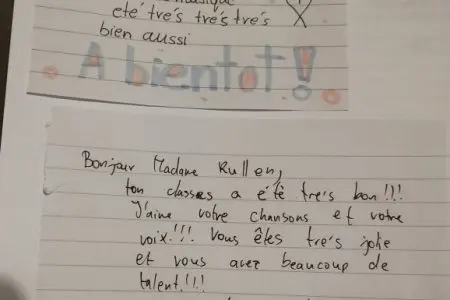 été trés trés trés
bien aussi
A bientot!
Bonjour Madame Kullen,
ton classes a été tres bon!!!
J'aime votre chansons et votre
voix!!! Vous êtes trés jolie
et vous avez beaucoup de
talent!!!